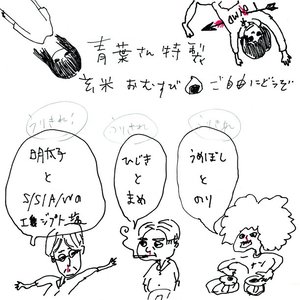 青葉さん特製
玄米おむすび ご自由にどうぞ
うりきれ!
うりきれ
うりきれ
明太子
と
S/S/A/Wの
ジプト塩
ひじき
と
まめ
うめぼし
と
のり